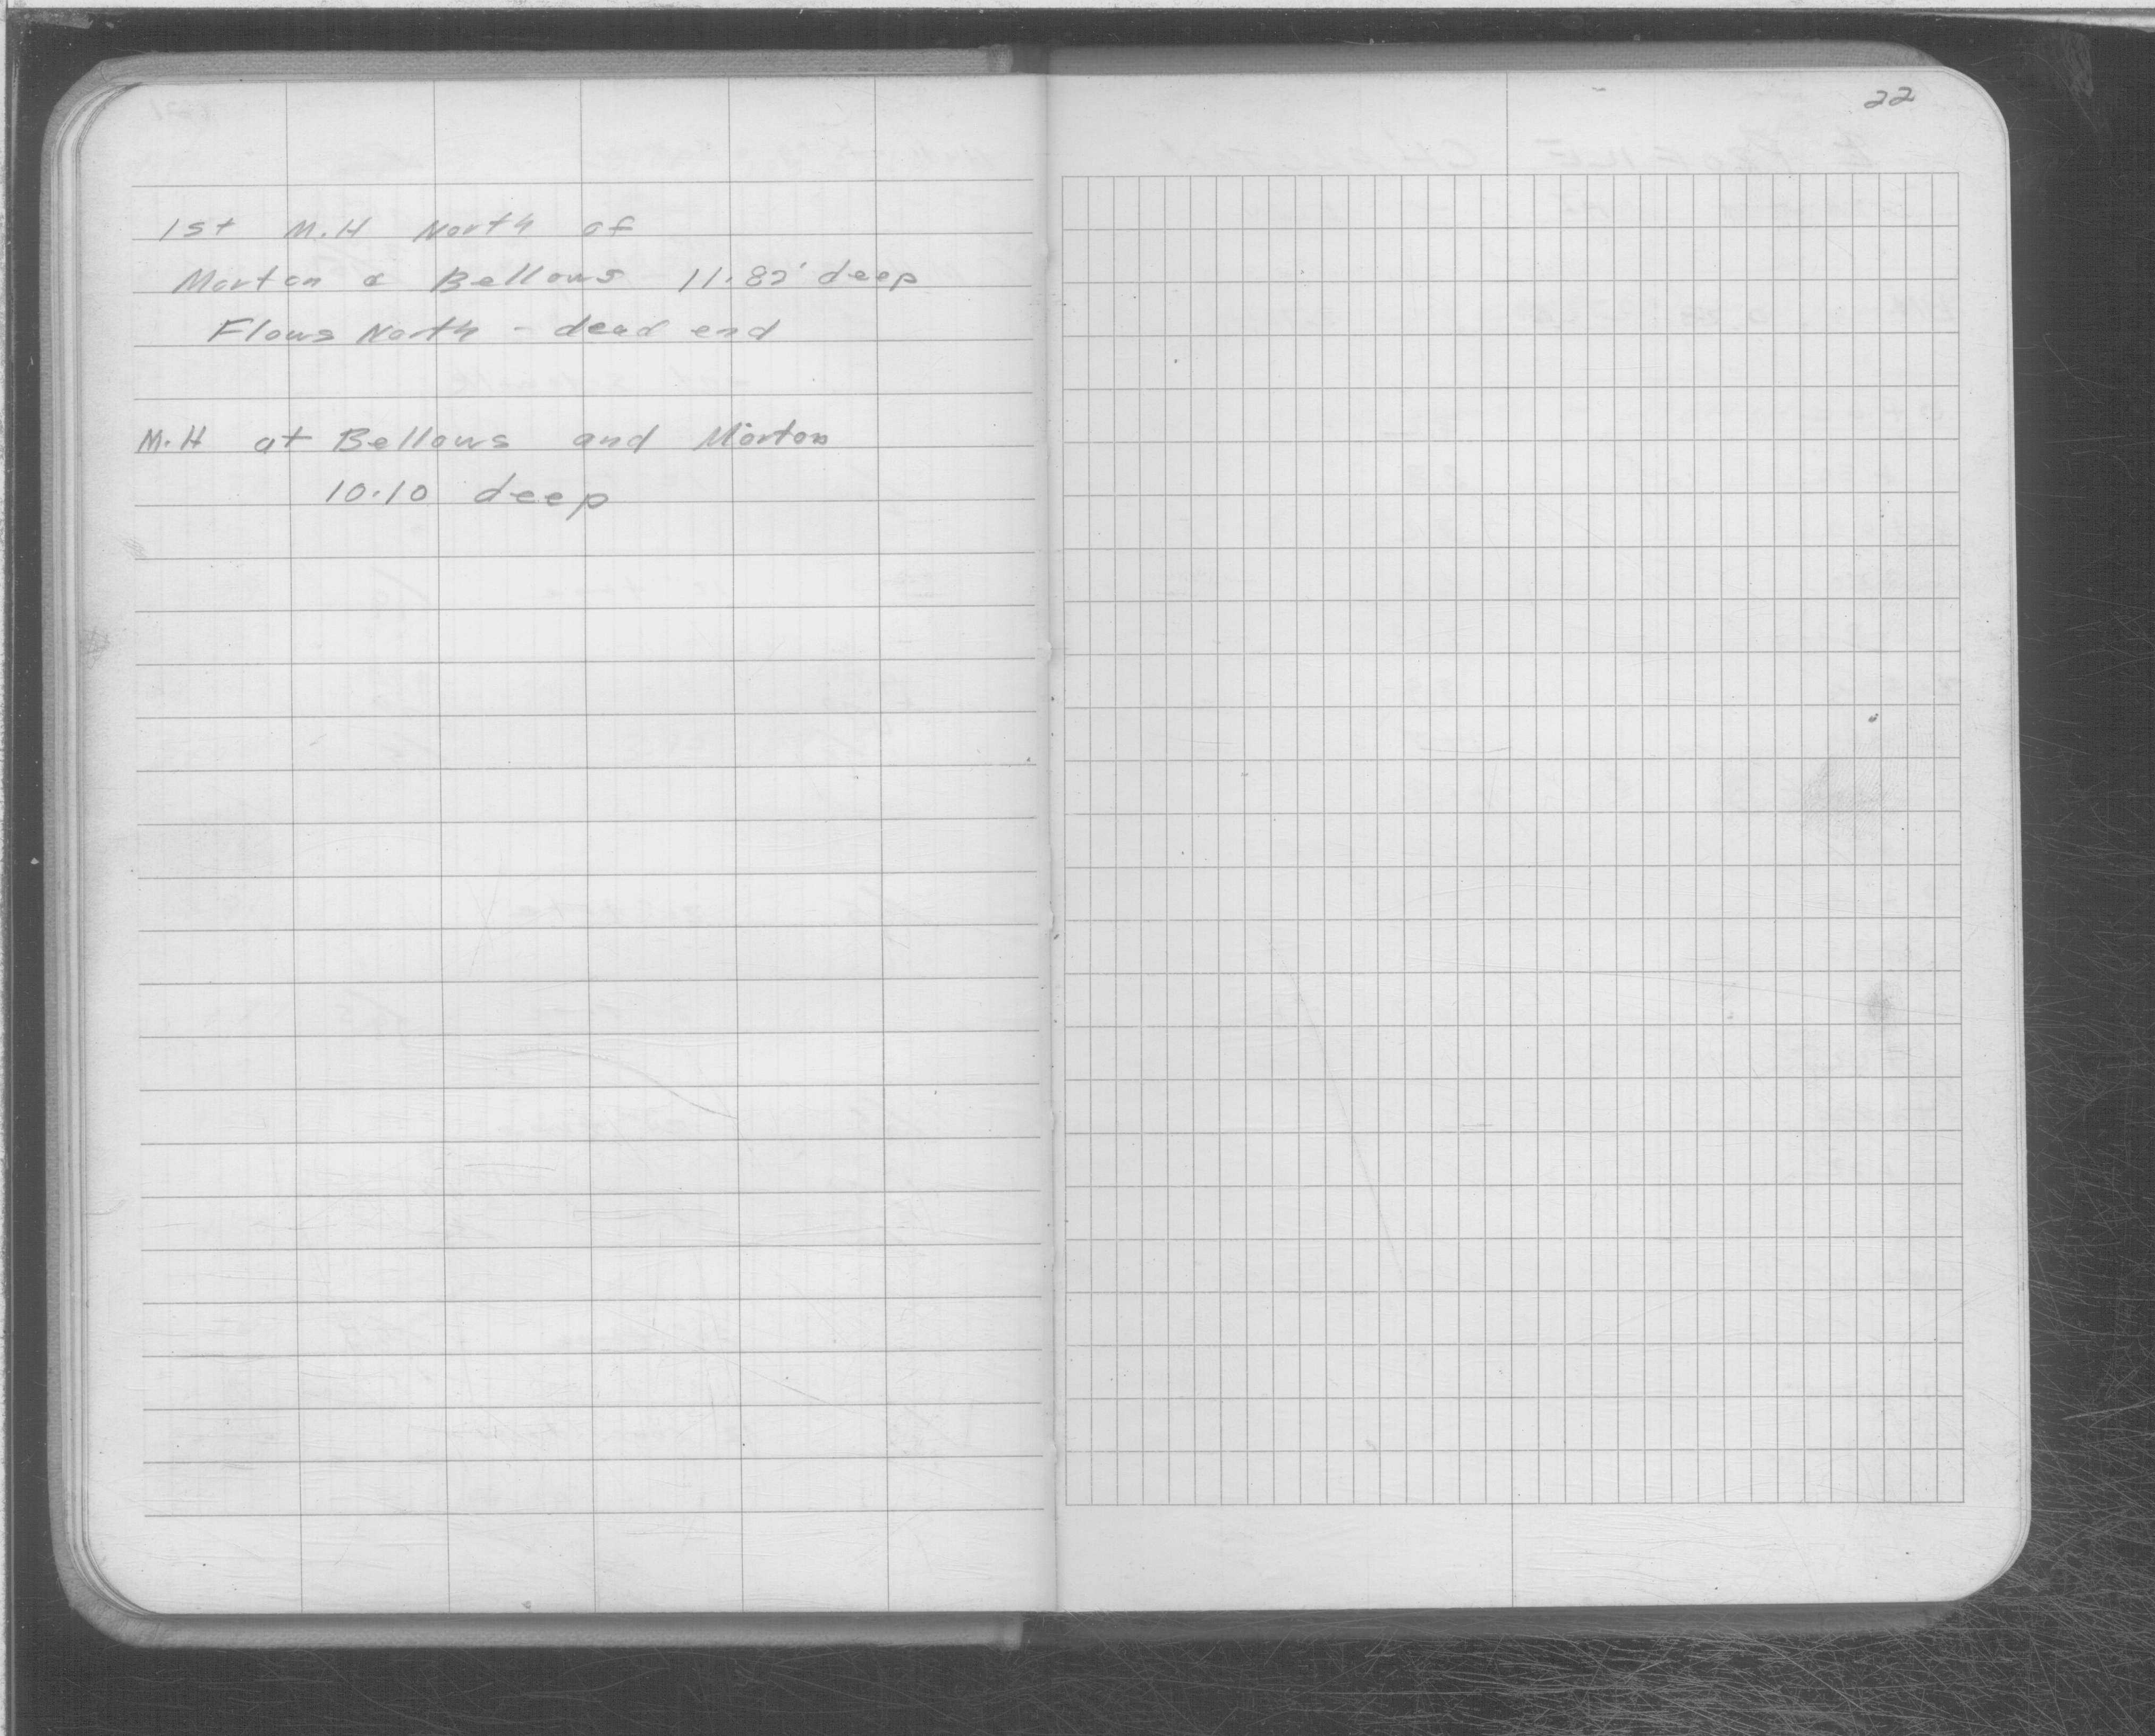 1st M.H North of
Morton & Bellows 11.82' deep
Flows North - dead end
M.H at Bellows and Morton
10.10 deep
22